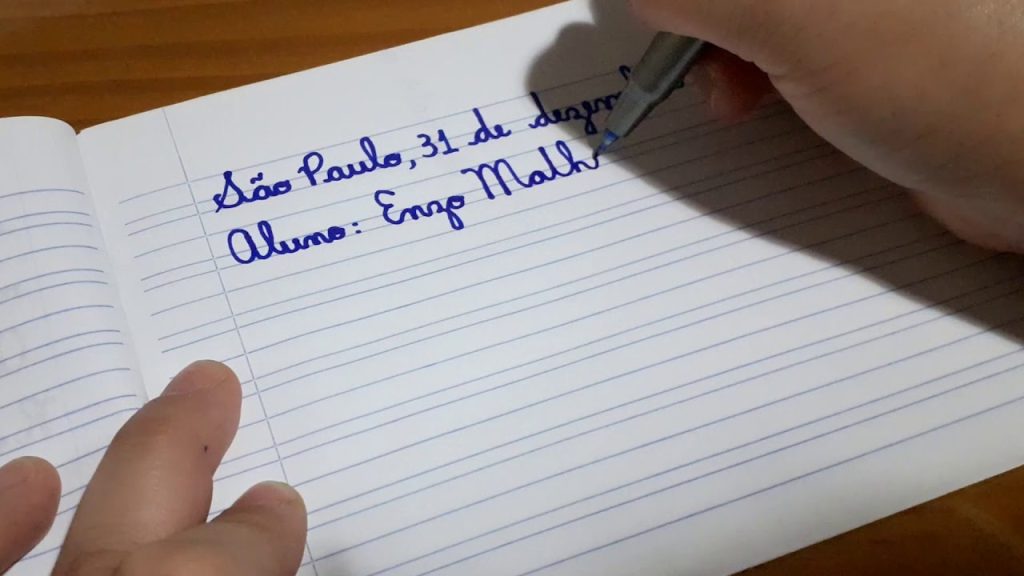 São Paulo, 31 de dezem
Aluno: Enzo Malh